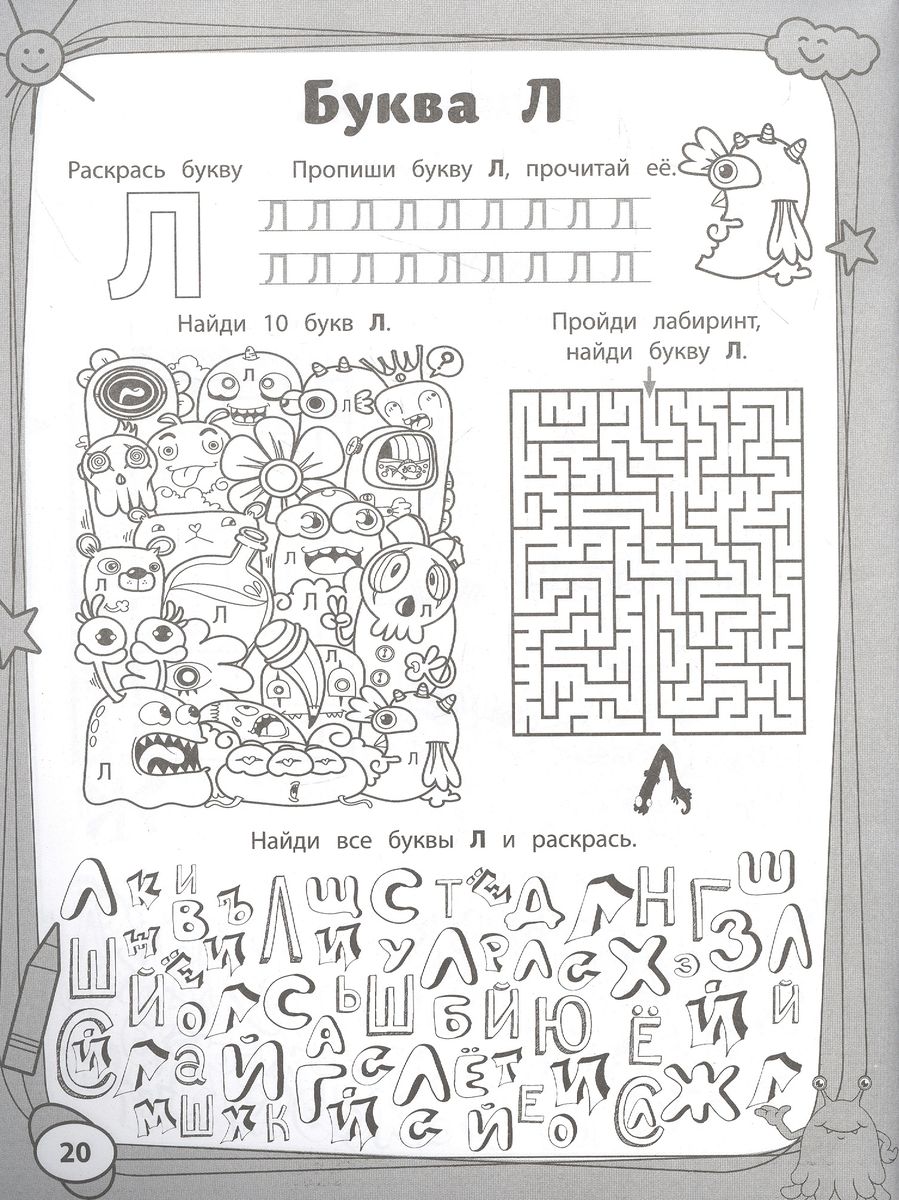 Буква Л
Раскрась букву
Пропиши букву Л, прочитай её.
Л
Л Л Л Л Л Л Л Л Л
Л Л Л Л Л Л Л Л Л
Найди 10 букв Л.
Пройди лабиринт,
найди букву Л.
?
Л
Л
Л
Л
Л
Л
Л
Л
Л
Л
Л
Найди все буквы Л и раскрась.
Л К И В Ъ Л Щ С Т Ё Д Л Н Г Ш
Ш Н Ё И Й У Л Р Л С Х З З Л
Й О Л С Ь Ш Б Й Ю Ё Й Й
С Й Л а Й Г А С Л Ё Т Й С Л Ж Л
М Ш Ж К Й С Й Е О
20